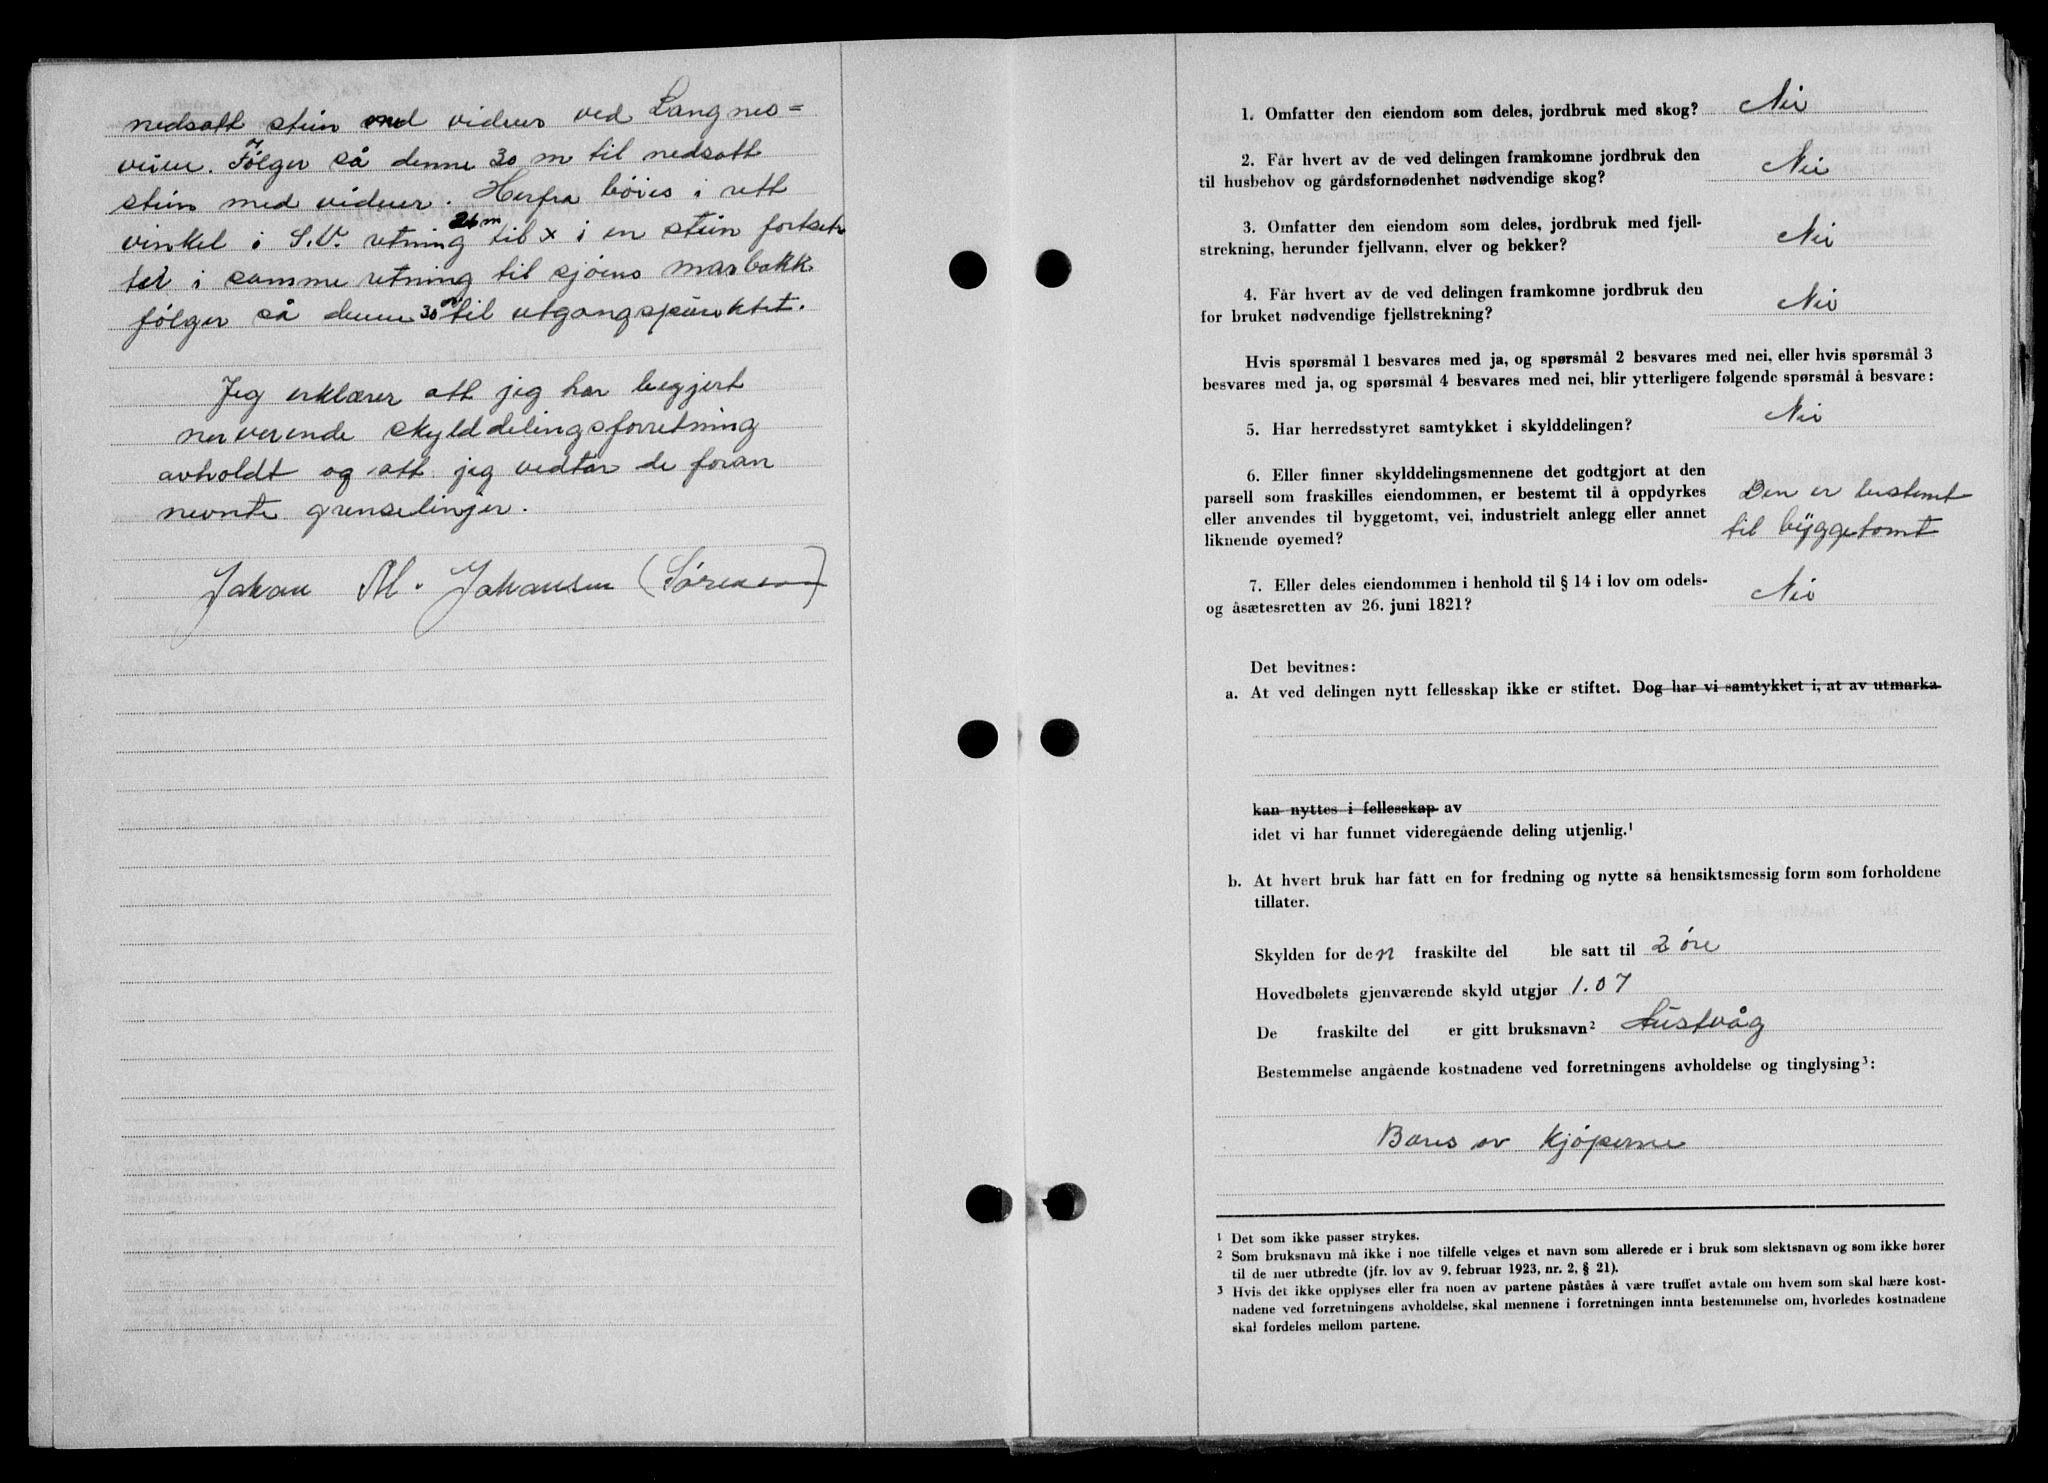 nedsatt stein med vidner ved Langnes=
veien. Følger så denne 30 m til nedsatt
stein med vidner. Herfra bøies i rett
vinkel i S.V. retning 26 m til x i en stein fortset-
ter i samme retning til sjøens marbakk
følger så denne 30 m til utgangspunktet.
Jeg erklærer att jeg har begjert
nerverende skylddelingsforretning
avholdt og att jeg vedtar de foran
nevnte grenselinjer.
Johan M. Johansen (Sørensen)
1. Omfatter den eiendom som deles, jordbruk med skog? Nei
2. Får hvert av de ved delingen framkomne jordbruk den
til husbehov og gårdsfornødenhet nødvendige skog? Nei
3. Omfatter den eiendom som deles, jordbruk med fjell-
strekning, herunder fjellvann, elver og bekker? Nei
4. Får hvert av de ved delingen framkomne jordbruk den
for bruket nødvendige fjellstrekning? Nei
Hvis spørsmål 1 besvares med ja, og spørsmål 2 besvares med nei, eller hvis spørsmål 3
besvares med ja, og spørsmål 4 besvares med nei, blir ytterligere følgende spørsmål å besvare:
5. Har herredsstyret samtykket i skylddelingen? Nei
6. Eller finner skylddelingsmennene det godtgjort at den
parsell som fraskilles eiendommen, er bestemt til å oppdyrkes
eller anvendes til byggetomt, vei, industrielt anlegg eller annet
liknende øyemed?
Den er bestemt
til byggetomt
7. Eller deles eiendommen i henhold til § 14 i lov om odels-
og åsætesretten av 26. juni 1821? Nei
Det bevitnes:
a. At ved delingen nytt fellesskap ikke er stiftet. Dog har vi samtykket i, at av utmarka
kan nyttes i fellesskap av
idet vi har funnet videregående deling utjenlig.¹
b. At hvert bruk har fått en for fredning og nytte så hensiktsmessig form som forholdene
tillater.
Skylden for den fraskilte del ble satt til 2 øre
Hovedbølets gjenværende skyld utgjør 1.07
De fraskilte del er gitt bruksnavn² Austvåg
Bestemmelse angående kostnadene ved forretningens avholdelse og tinglysing³:
Bæres av kjøperne
¹ Det som ikke passer strykes.
² Som bruksnavn må ikke i noe tilfelle velges et navn som allerede er i bruk som slektsnavn og som ikke hører
til de mer utbredte (jfr. lov av 9. februar 1923, nr. 2, § 21).
³ Hvis det ikke opplyses eller fra noen av partene påståes å være truffet avtale om hvem som skal bære kost-
nadene ved forretningens avholdelse, skal mennene i forretningen innta bestemmelse om, hvorledes kostnadene
skal fordeles mellom partene.